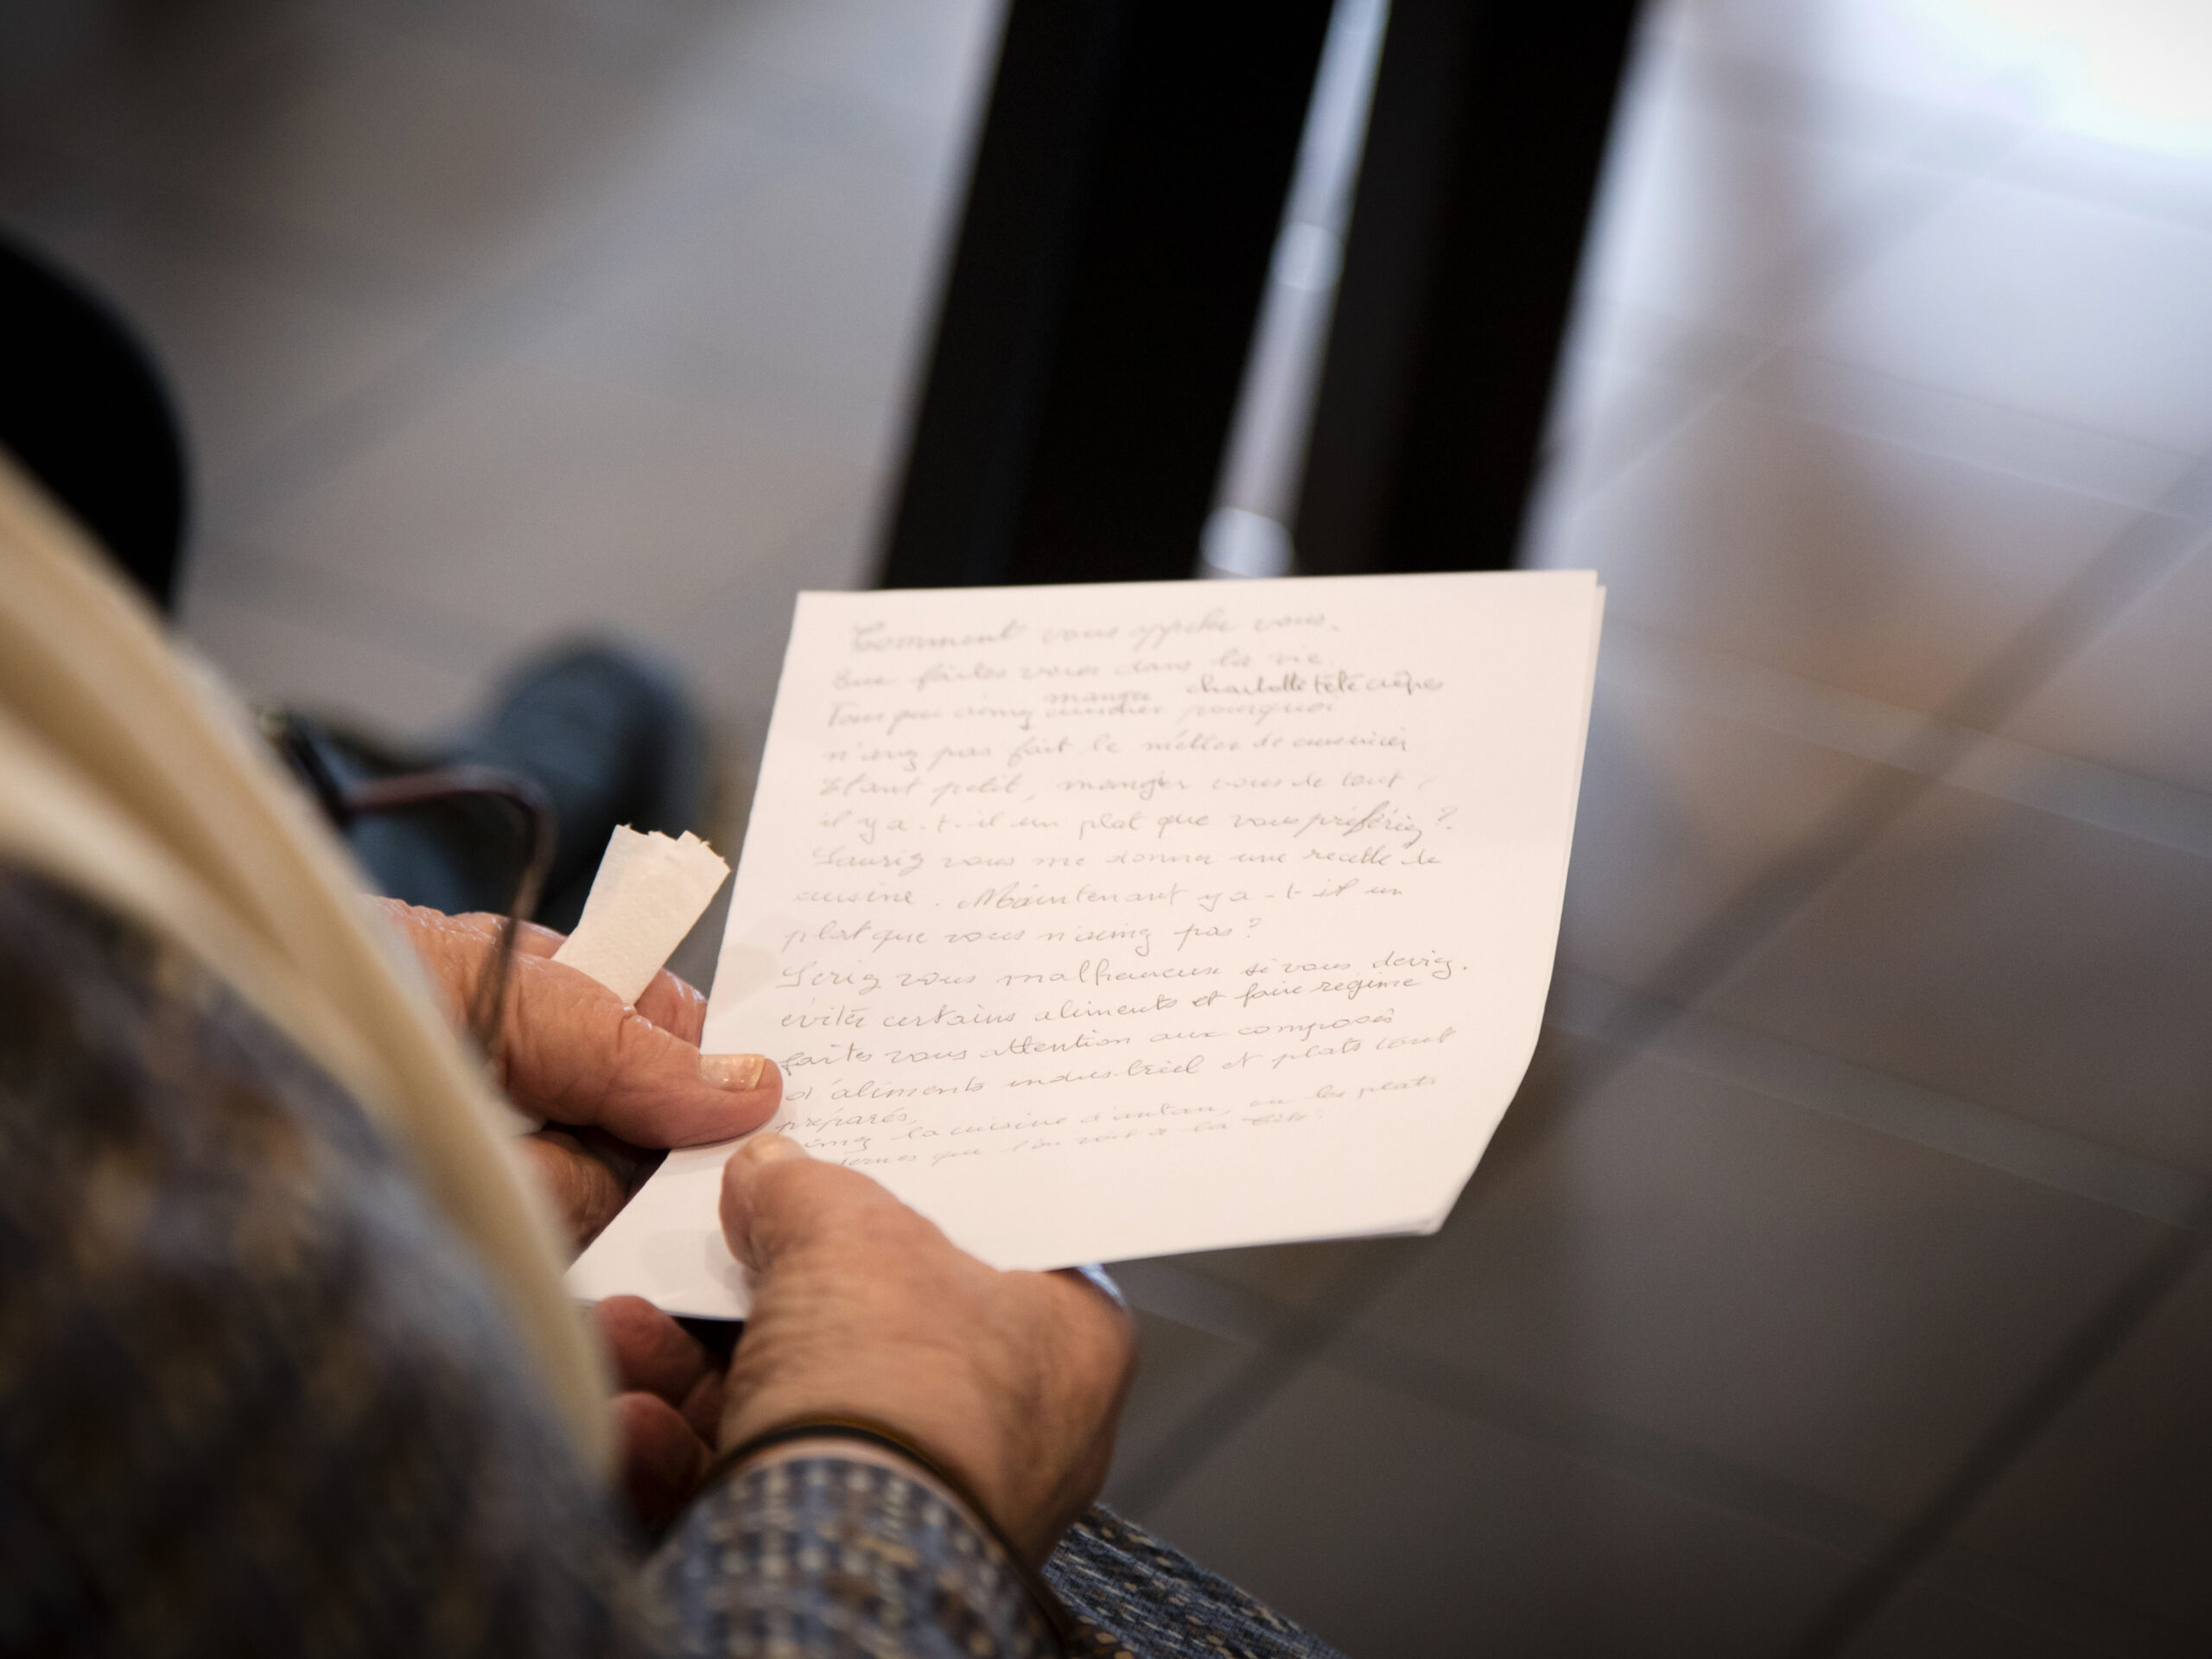 Comment vous appeler vous.
Que faites vous dans la vie.
manger charlotte tété crêpes
Vous qui aimez cuisiner pourquoi
n'avez pas fait le métier de cuisinier
Etant petit, mangier vous de tout
il y a-t-il un plat que vous préfériez?
Sauriez vous me donner une recette de
cuisine. Maintenant y a-t-il un
plat que vous n'aimez pas?
Seriez vous malheureux si vous deviez.
éviter certains aliments et faire régime
faites vous attention aux composés
d'aliments industriel et plats tout
préparés,
la cuisine d'antan, ou les plats
que l'on voit à la télé.